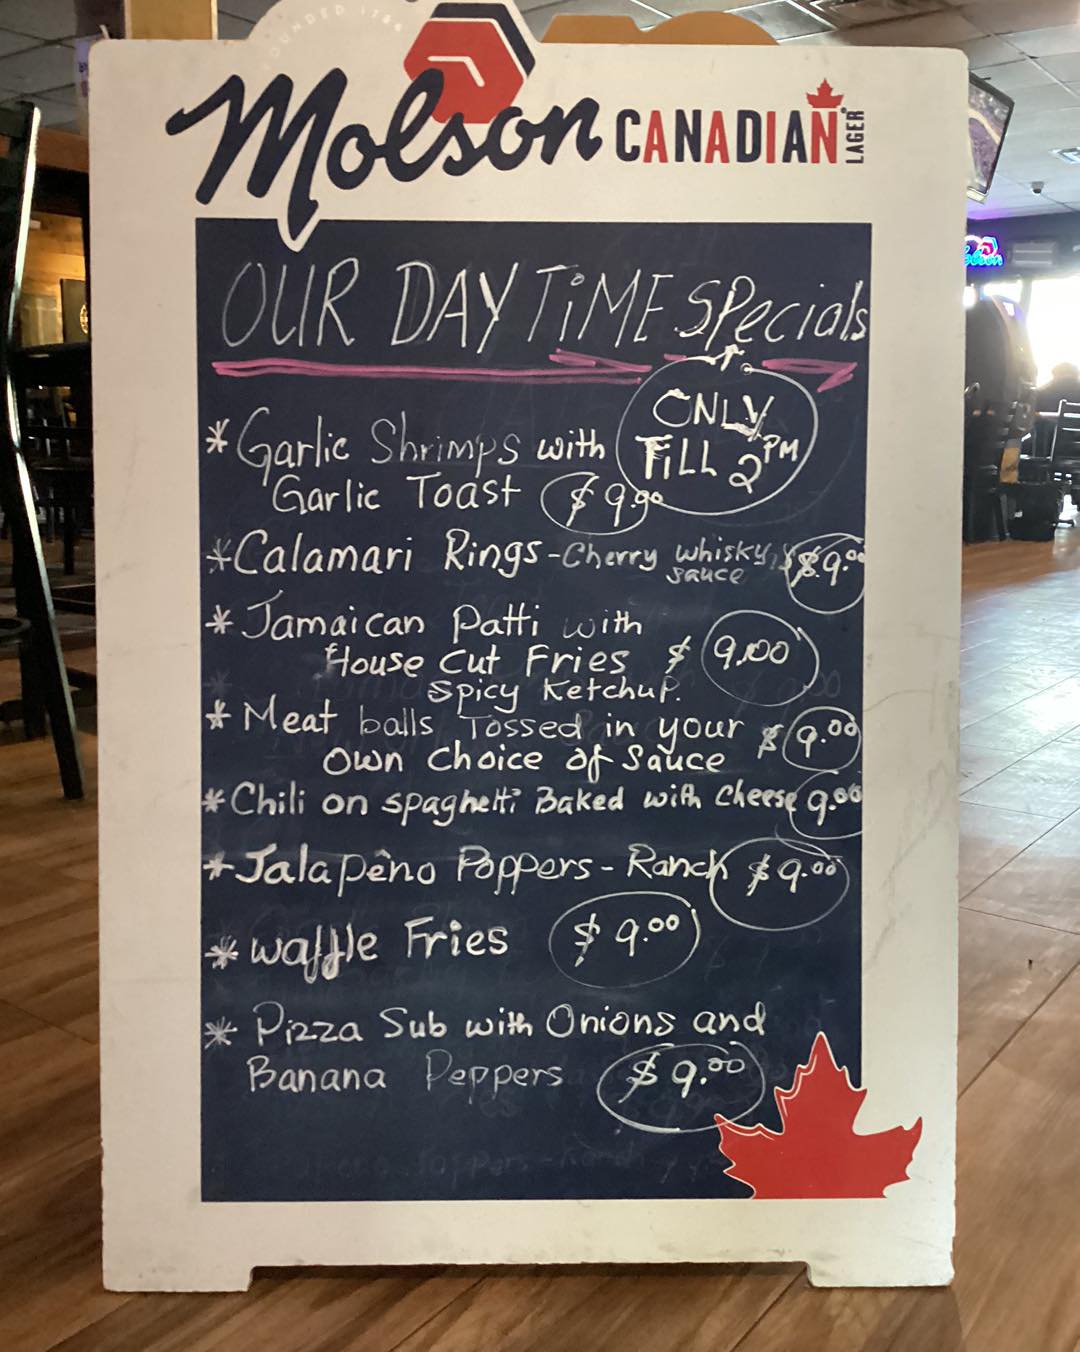 FOUNDED 1786
Molson CANADIAN LAGER
OUR DAY TiME SPecials
ONLY
TiLL 2PM
* Garlic Shrimps with
Garlic Toast $ 9.00
* Calamari Rings - Cherry whisky $9.00
sauce
* Jamaican Patti with
House Cut Fries $ 9.00
Spicy Ketchup.
* Meat balls Tossed in your $ 9.00
Own Choice of Sauce
* Chili on spaghetti Baked with Cheese 9.00
* Jalapêno Poppers - Ranch $9.00
* waffle Fries $ 9.00
* Pizza Sub with Onions and
Banana Peppers $ 9.00